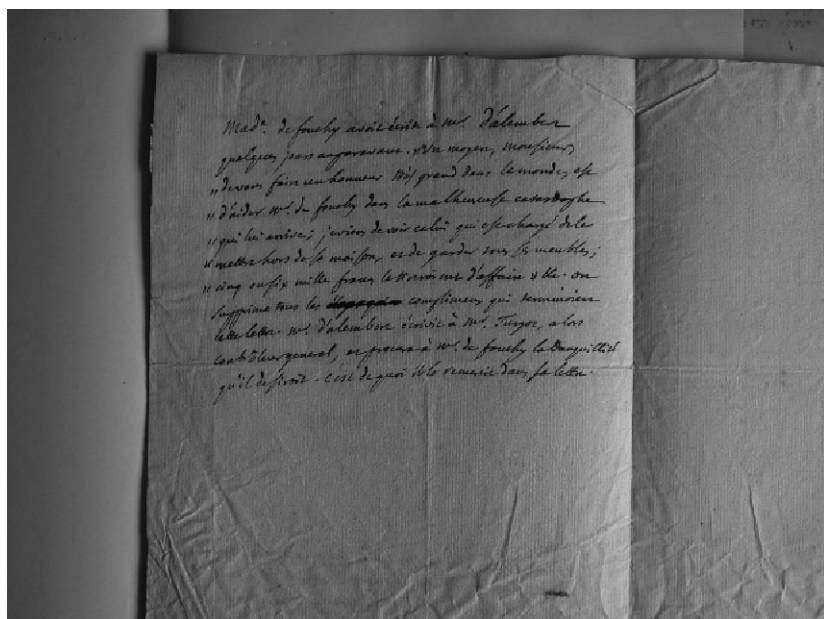 Made. de fouchy avoit écrit à mr. D'alembert
quelques jours auparavant. "Un moyen, monsieur,
"de vous faire un honneur très grand dans le monde, est
"d'aider mr. de fouchy dans la malheureuse catastrophe
"qui lui arrive; je viens de voir celui qui est chargé de le
"mettre hors de sa maison, et de garder tous ses meubles;
"cinq ou six mille francs le d'affaire" &c. on
supprime tous les complimens qui terminoient
cette lettre. mr. D'alembert écrivit à mr. Turgot, alors
contrôleur general, et procura à mr. de fouchy la tranquillité
qu'il desiroit. c'est de quoi il le remercie dans sa lettre.